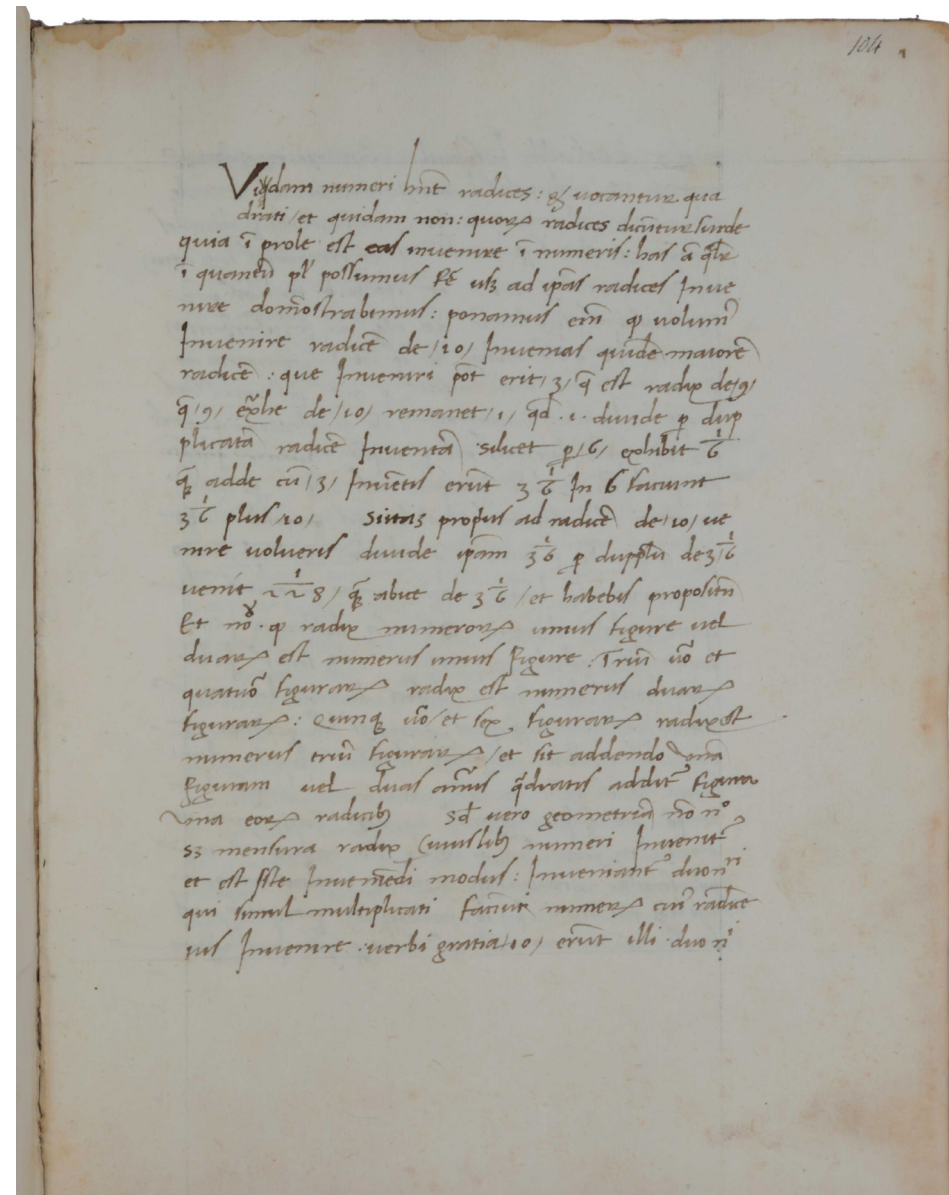 104
Vidam numeri hñt radices: & vocantur qua
drati / et quidam non: quorꝝ radices dicũtur surde
quia ĩ prole est eas invenire ĩ numeris: has ã qlr
ĩ quantũ pl possumus fe usꝫ ad ipãs radices Inve
nire demõstrabimus: ponamus enĩ ꝙ volum9
Invenire radicẽ de /10/ Invenias quidẽ maiorẽ
radicẽ: que Inveniri põt erit /3/ q̃ est radix de /9/
q̃ /9/ exᵃhe de /10/ remanet /1/ qd .1. divide ꝑ dup
plicatã radicẽ Inventã silicet ꝑ /6/ exhibit 1/6
quã adde cũ /3/ Invẽtis erũt 3 1/6 In 6 faciunt
3 1/6 plus /10/ Si itaꝫ propius ad radicẽ de /10/ ve
nire volueris divide ipãm 3 1/6 ꝑ dupplũ de 3 1/6
venit 1/228 / quã abice de 3 1/6 / et habebis propositũ
Et nõ ꝙ radix numerorꝝ unius figure vel
duarꝝ est numerus unius figure. Triũ vo et
quatuõ figurarꝝ radix est numerus duarꝝ
figurarꝝ: Quinqꝫ vo / et sex figurarꝝ radix est
numerus triũ figurarꝝ / et sic addendo unã
figuram vel duas numis qᵃdratis addit᷑ figura
una eorꝝ radicibꝫ Sd vero geometriã nõ nº
sꝫ mensura radix cuiuslibꝫ numeri Invenit᷑
et est iste Inveniẽdi modus: Inveniant᷑ duo nⁱ
qui simul multiplicati faciunt numerꝝ cui9 radicẽ
vis Invenire. verbi gratia /10/ erũt illi duo nⁱ